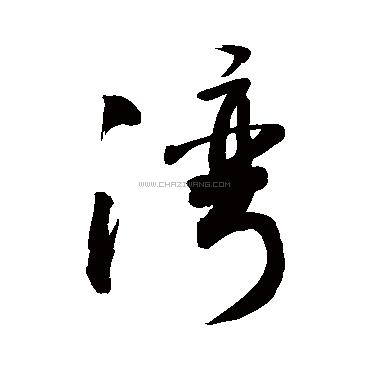 湾
WWW.CHAZIWANG.COM